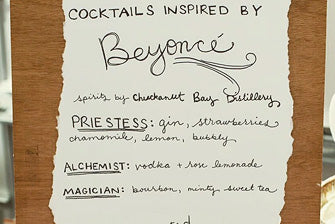 COCKTAILS INSPIRED BY
Beyoncé
spirits by Chuckanut Bay Distillery
PRIESTESS: gin, strawberries
chamomile, lemon, bubbly
ALCHEMIST: vodka + rose lemonade
MAGICIAN: bourbon, minty sweet tea